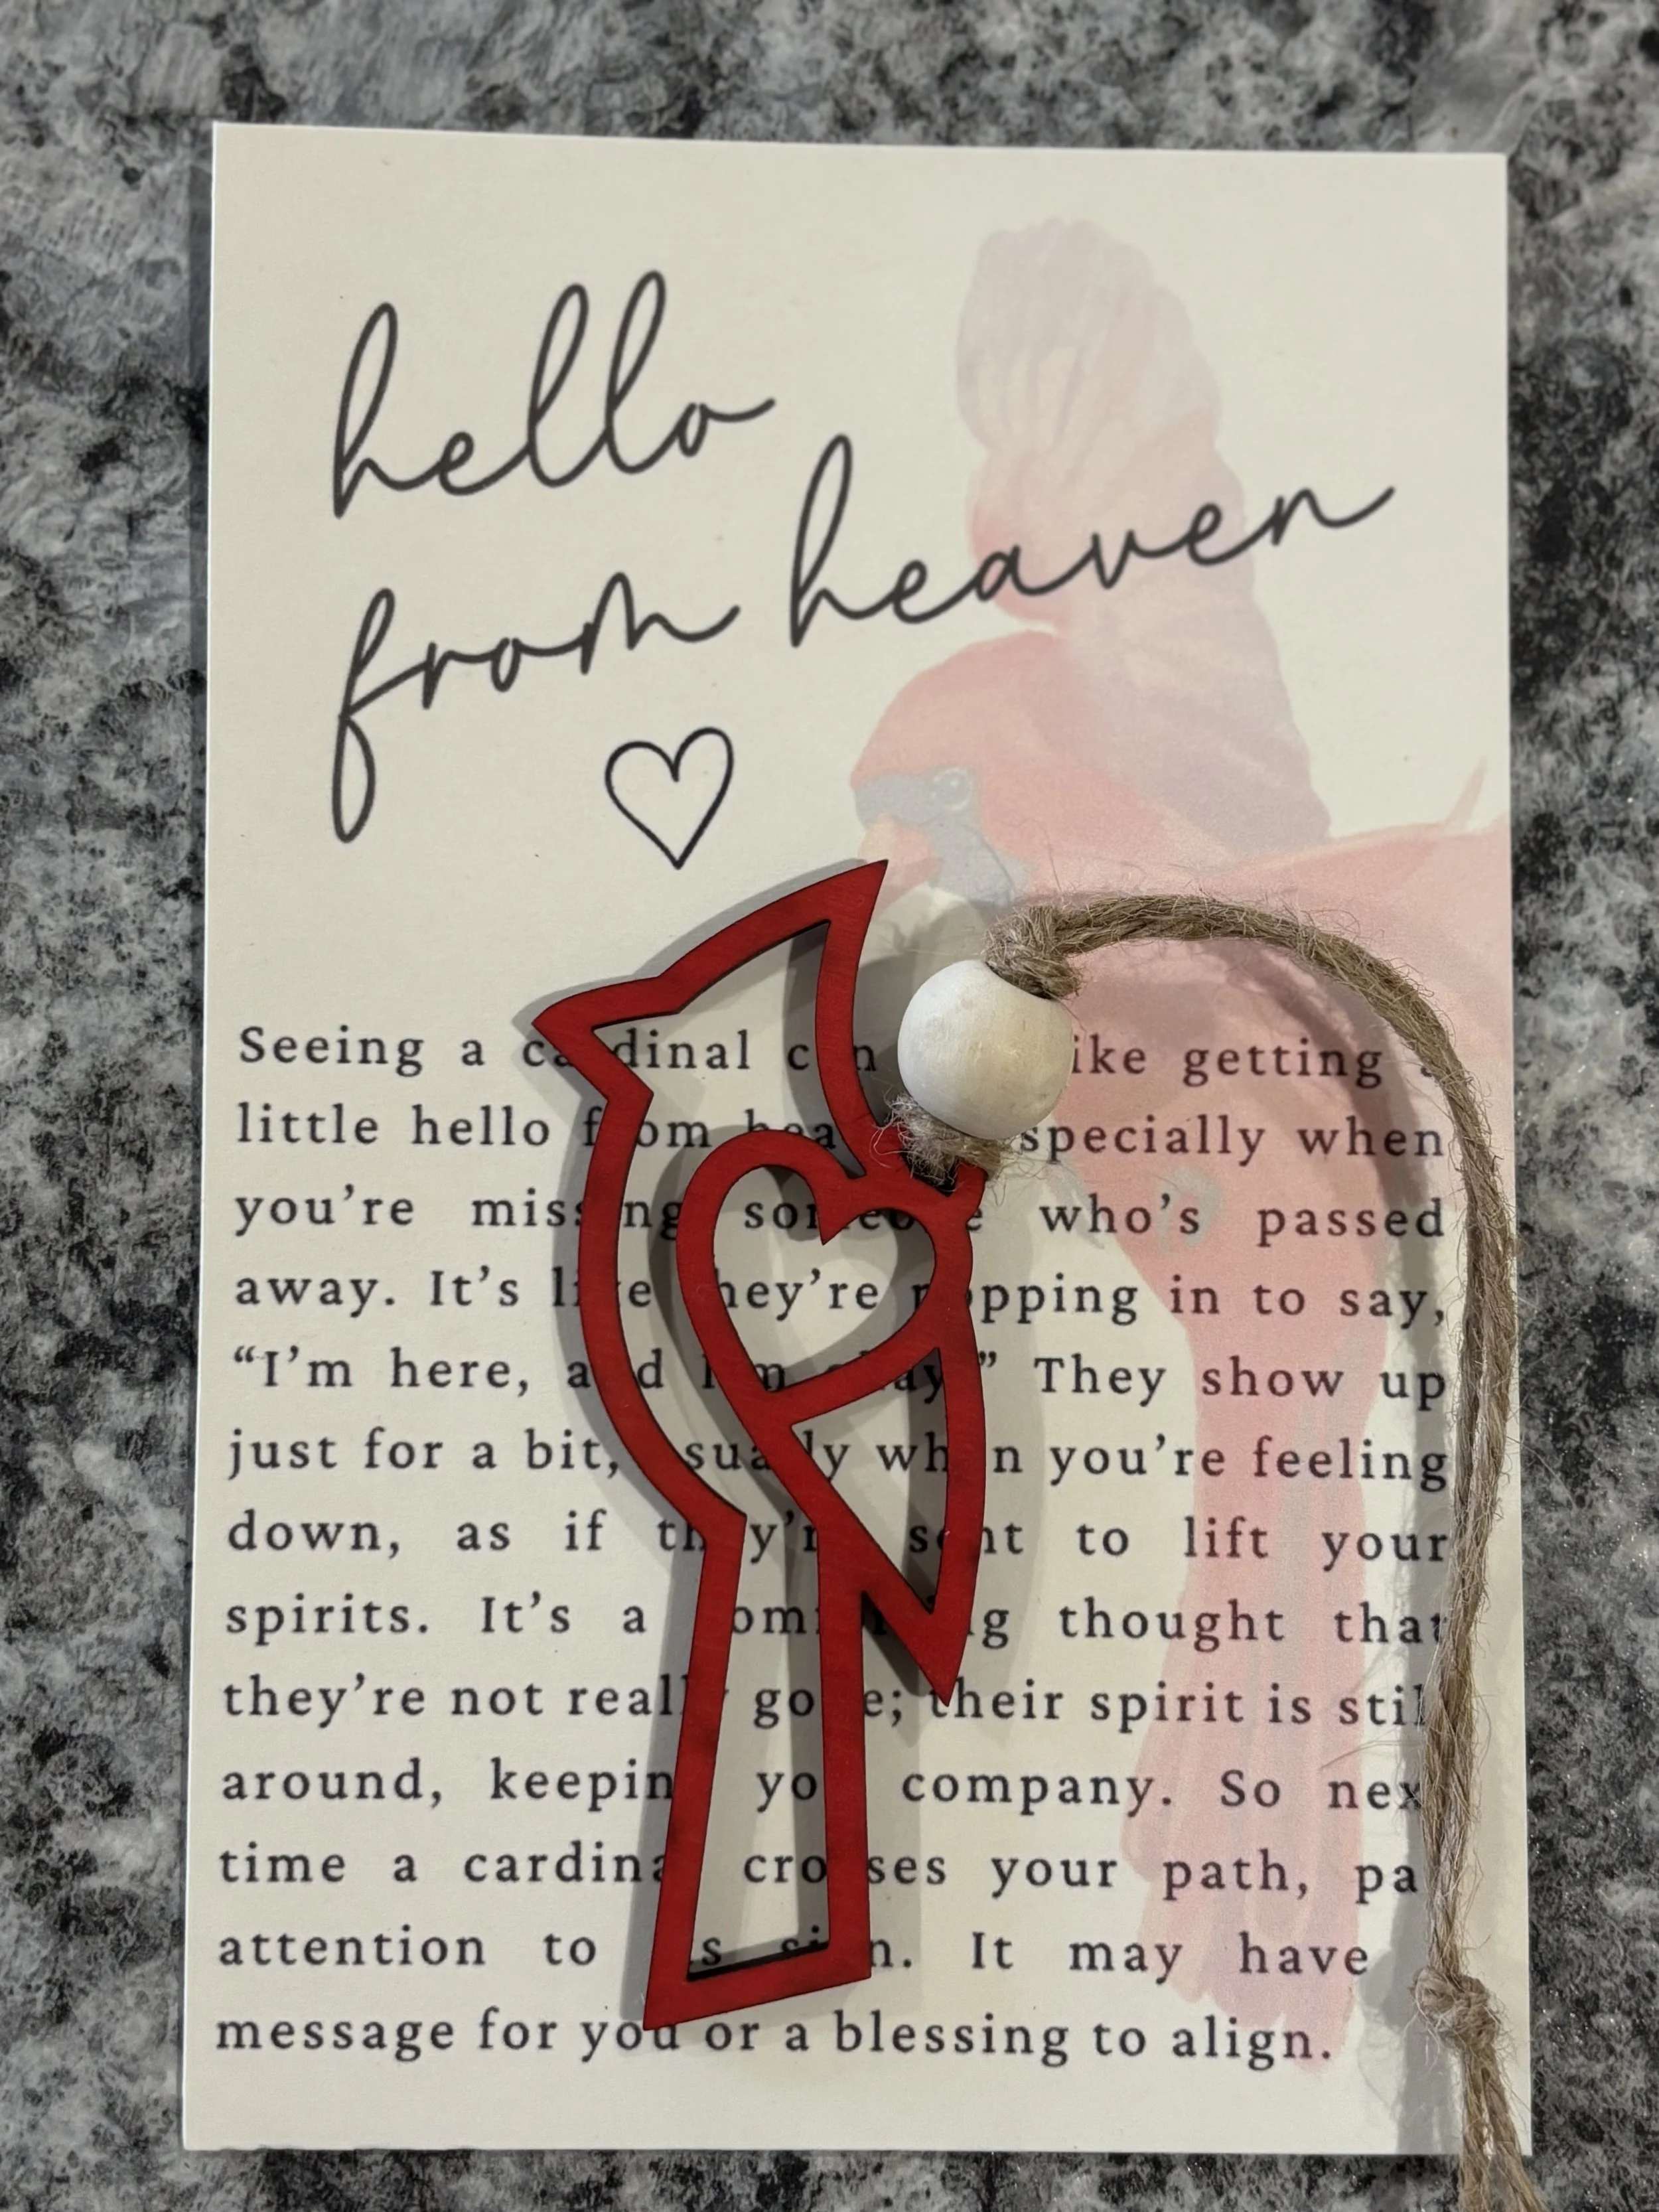 hello
from heaven
Seeing a cardinal can like getting a
little hello from heaven especially when
you’re missing someone who’s passed
away. It’s like they’re popping in to say,
“I’m here, and I’m okay.” They show up
just for a bit, usually when you’re feeling
down, as if they’re sent to lift your
spirits. It’s a comforting thought that
they’re not really gone; their spirit is still
around, keeping you company. So next
time a cardinal crosses your path, pay
attention to its sign. It may have
message for you or a blessing to align.